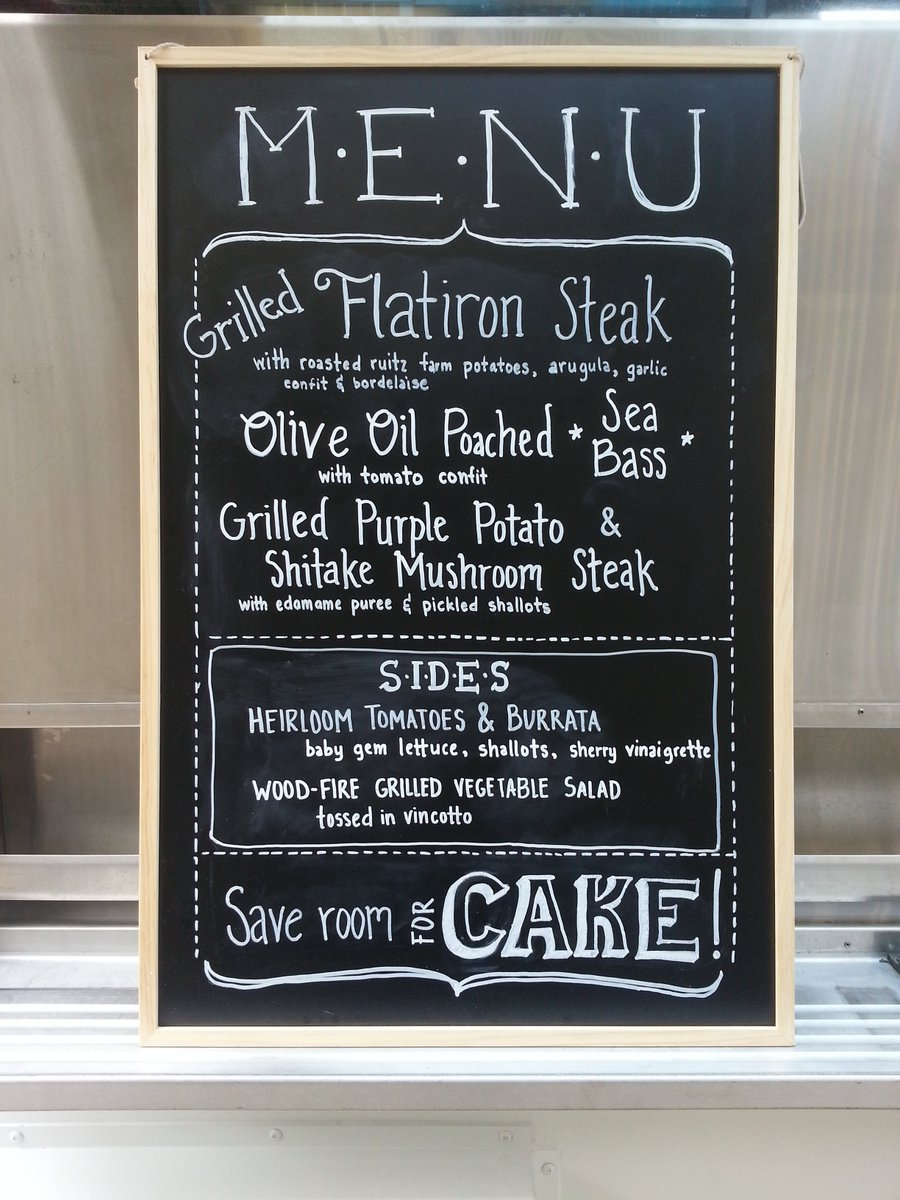 M·E·N·U
Grilled Flatiron Steak
with roasted ruitz farm potatoes, arugula, garlic
confit & bordelaise
Olive Oil Poached * Sea Bass *
with tomato confit
Grilled Purple Potato &
Shitake Mushroom Steak
with edamame puree & pickled shallots
S·I·D·E·S
HEIRLOOM TOMATOES & BURRATA
baby gem lettuce, shallots, sherry vinaigrette
WOOD-FIRE GRILLED VEGETABLE SALAD
tossed in vincotto
Save room FOR CAKE!